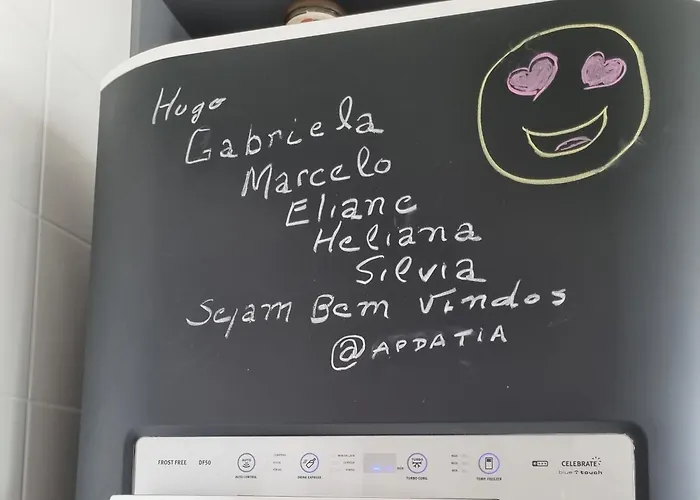 Hugo
Gabriela
Marcelo
Eliane
Heliana
Silvia
Sejam Bem Vindos
@APDATIA
FROST FREE DF50
CELEBRATE
blue touch